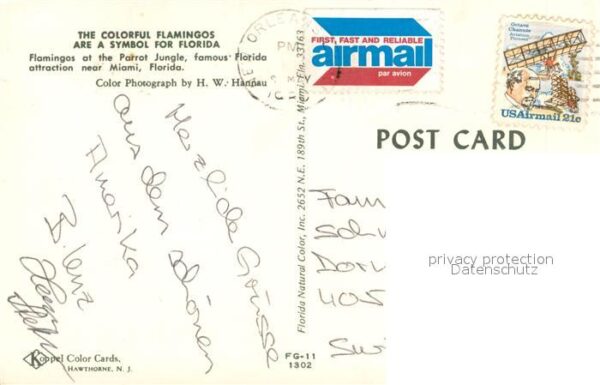 THE COLORFUL FLAMINGOS
ARE A SYMBOL FOR FLORIDA
Flamingos at the Parrot Jungle, famous Florida
attraction near Miami, Florida.
Color Photograph by H. W. Hannau
Herzliche Grüsse
aus dem schönen
Amerika
B. Lenz
Koppel Color Cards,
HAWTHORNE, N. J.
Florida Natural Color, Inc. 2652 N.E. 189th St., Miami, Fla. 33163
FG-11
1302
ORLEA
PM
FIRST, FAST AND RELIABLE
airmail
par avion
Octave
Chanute
Aviation
Pioneer
USAirmail 21c
POST CARD
Fam
Sch
Dor
405
Swi
privacy protection
Datenschutz